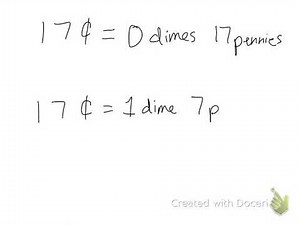 17¢ = 0 dimes 17 pennies
17¢ = 1 dime 7p
Created with Doceri